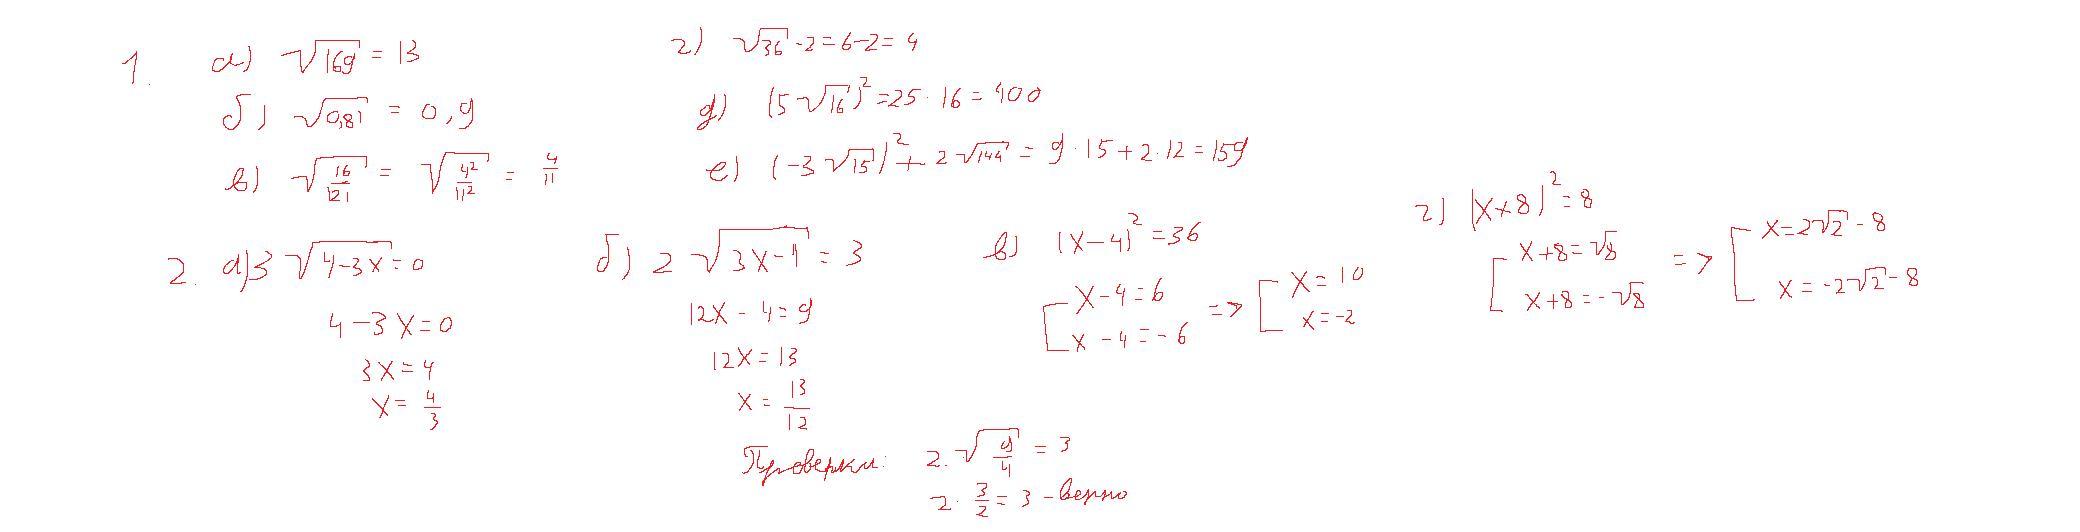 1. а) √169 = 13
б) √0,81 = 0,9
в) √(16/121) = √(4²/11²) = 4/11
г) √36 - 2 = 6 - 2 = 4
д) (5√16)² = 25 · 16 = 400
е) (-3√15)² + 2√144 = 9 · 15 + 2 · 12 = 159
2. а) 3√(4-3x) = 0
4 - 3x = 0
3x = 4
x = 4/3
б) 2√(3x-1) = 3
12x - 4 = 9
12x = 13
x = 13/12
Проверки: 2 · √(9/4) = 3
2 · 3/2 = 3 - верно
в) (x-4)² = 36
[ x - 4 = 6
x - 4 = -6 => [ x = 10
x = -2
г) (x+8)² = 8
[ x + 8 = √8
x + 8 = -√8 => [ x = 2√2 - 8
x = -2√2 - 8